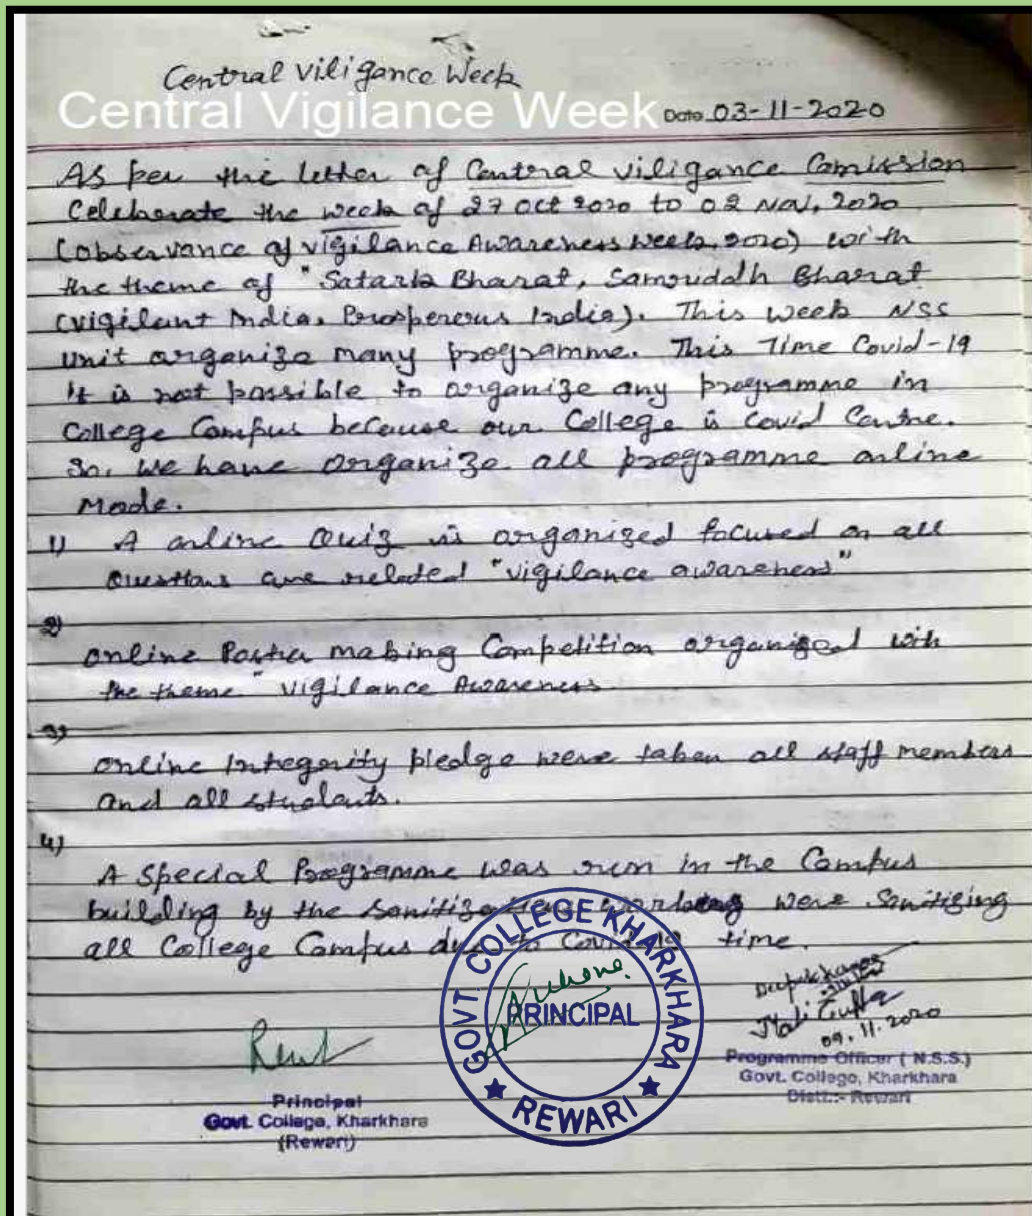 Central Viligance Week
Central Vigilance Week
Date 03-11-2020
As per the letter of Central viligance Comission
Celebrate the week of 27 oct 2020 to 02 Nov, 2020
(observance of vigilance Awareness week, 2020) with
the theme of "Satark Bharat, Samruddh Bharat
(vigilant India, Prosperous India). This week NSS
Unit organize many programme. This Time Covid-19
it is not possible to organize any programme in
College Campus because our College is Covid Centre.
So, we have organize all programme online
Mode.
1) A online Quiz is organized focused on all
questions are related "vigilance awareness"
2)
online Poster making Competition organized with
the theme "vigilance Awareness
3)
online Integrity pledge were taken all staff members
and all students.
4)
A Special Programme was run in the Campus
building by the were Sanitizing
all College Campus due to Covid-19 time.
GOVT COLLEGE KHARKHARA
PRINCIPAL
REWARI
Principal
Govt. College, Kharkhara
(Rewari)
Jyoti Gupta
09.11.2020
Programme Officer ( N.S.S.)
Govt. College, Kharkhara
Distt:- Rewari